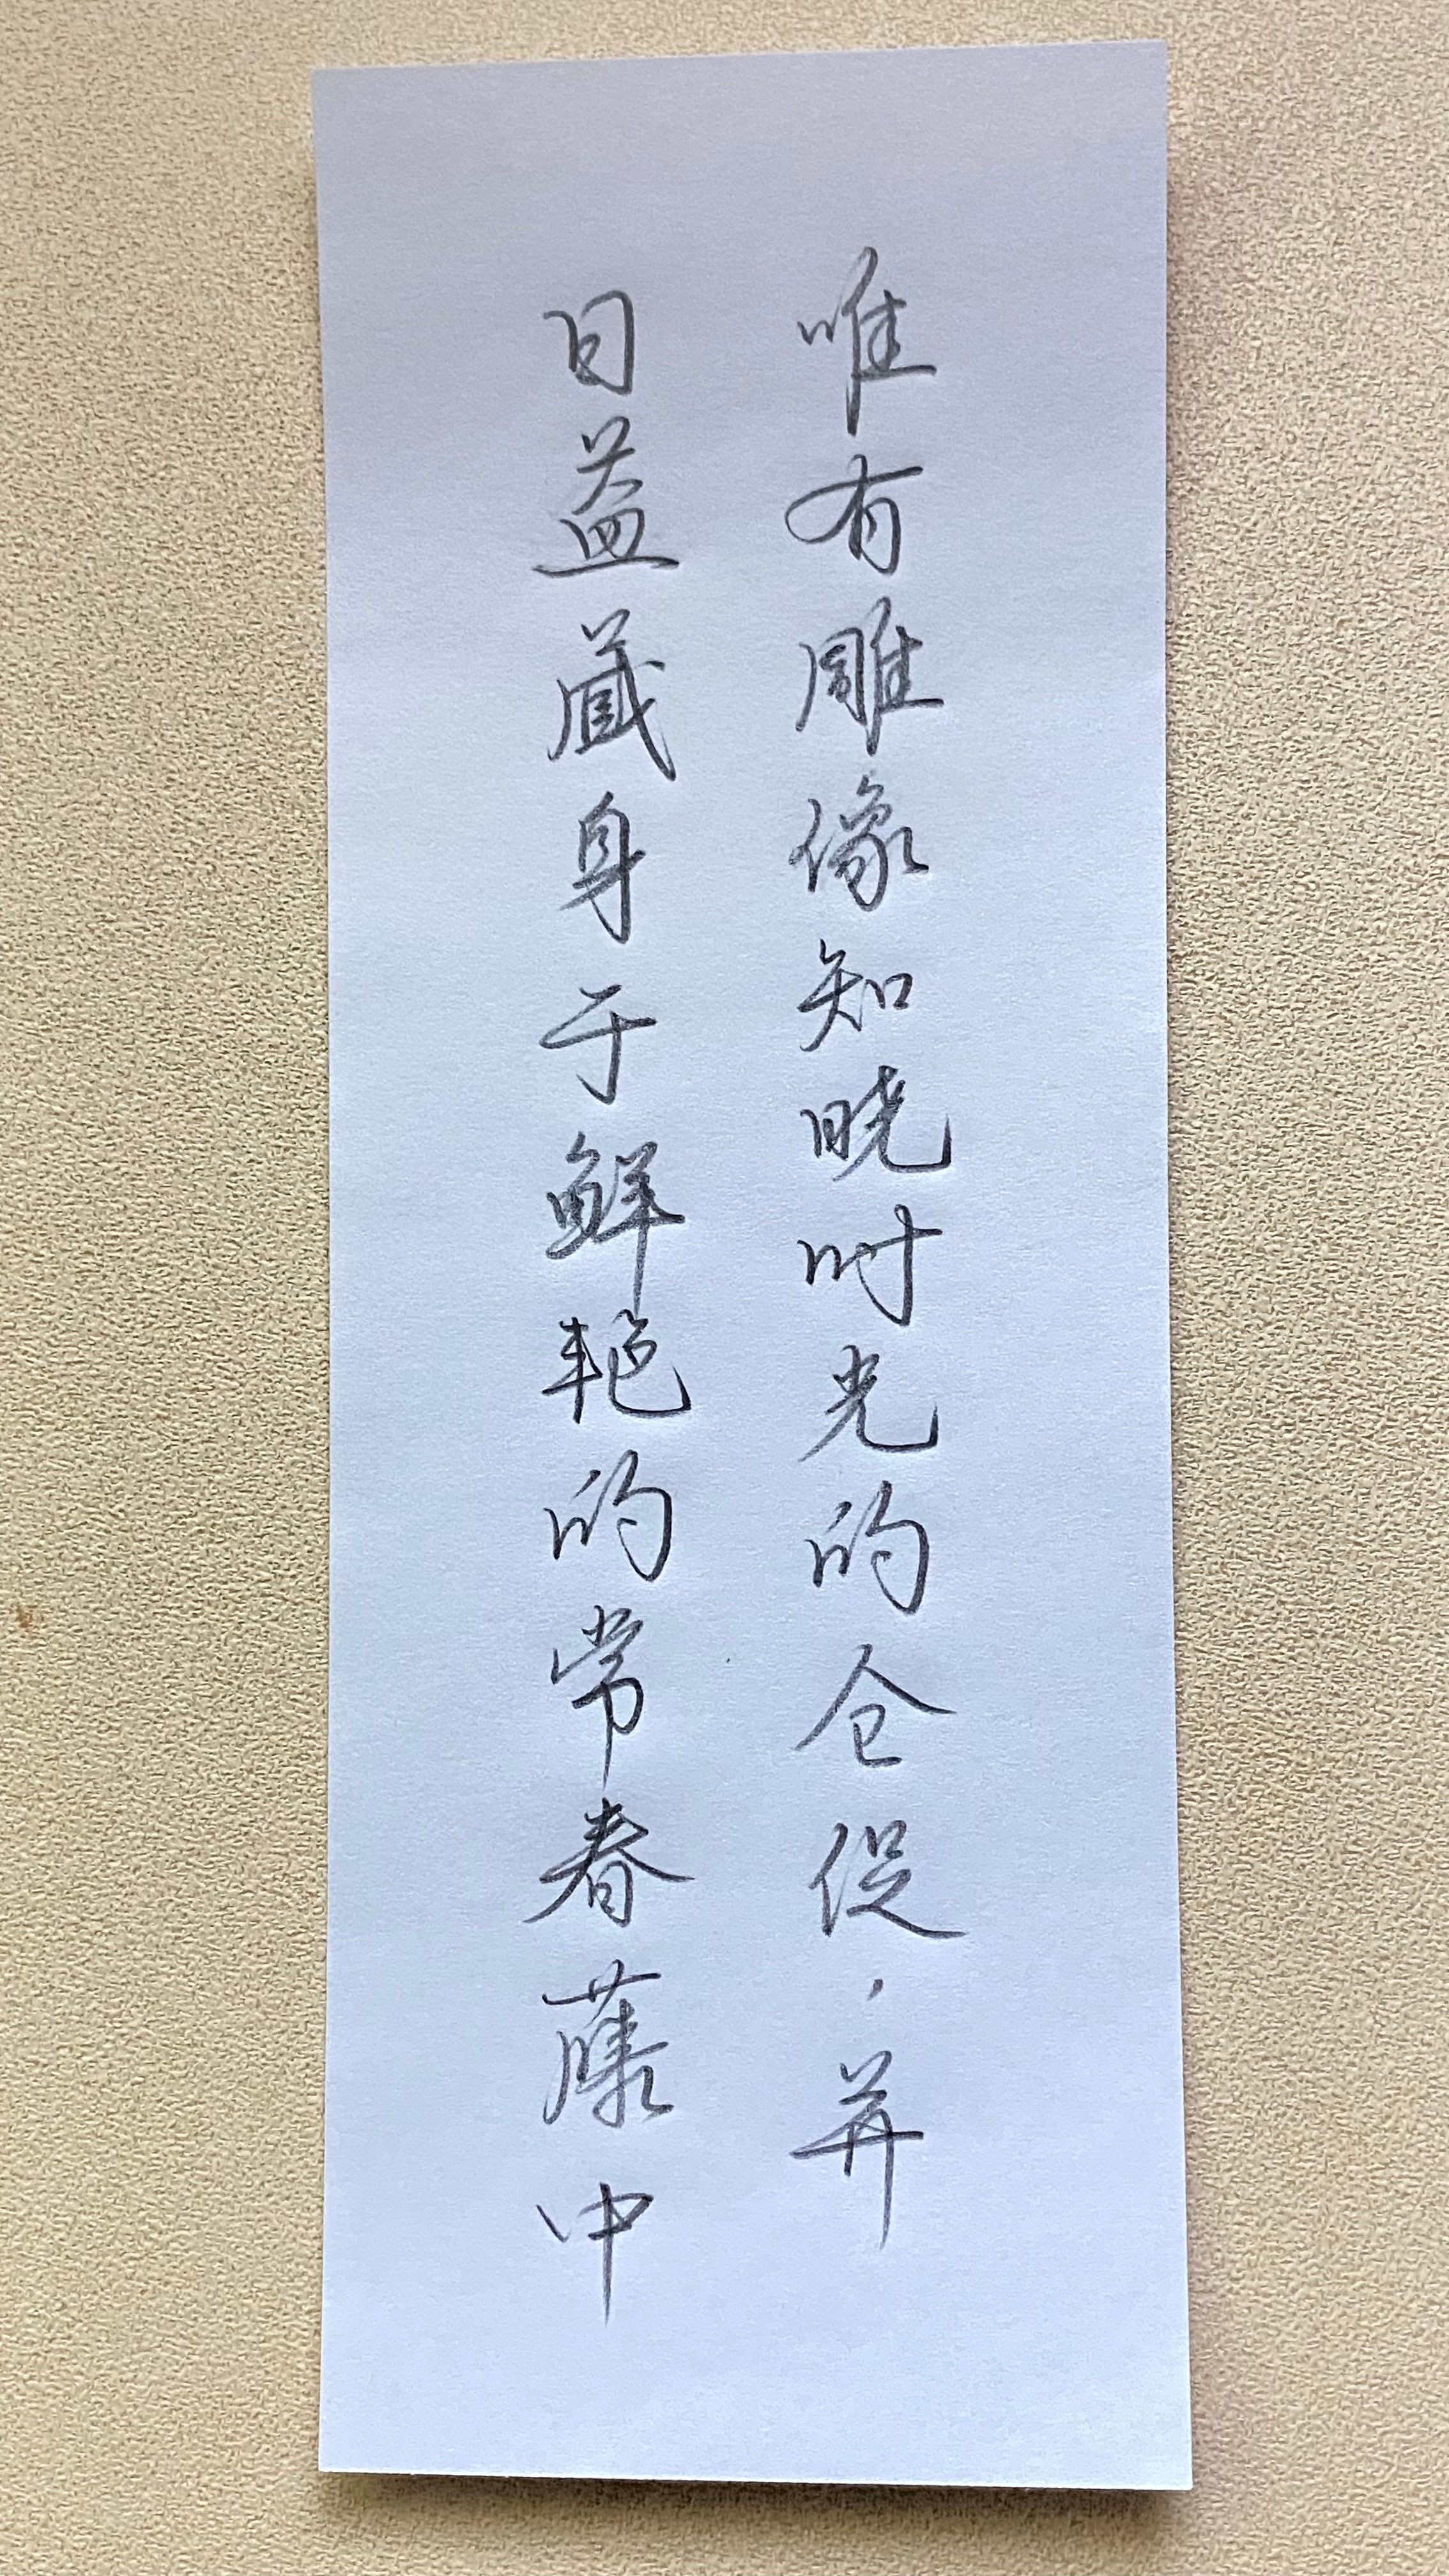 唯有雕像知晓时光的仓促，并
日益藏身于鲜艳的常春藤中